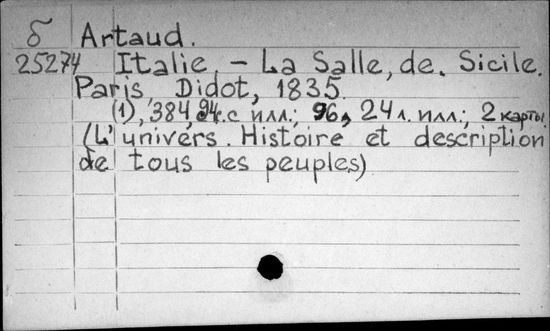 б Artaud.
25274 Italie. – La Salle, de. Sicile.
Paris, Didot, 1835.
(1), 384, 94 с. с илл.; 96, 24 л. илл.; 2 карты
(L'univers. Histoire et description
de tous les peuples)